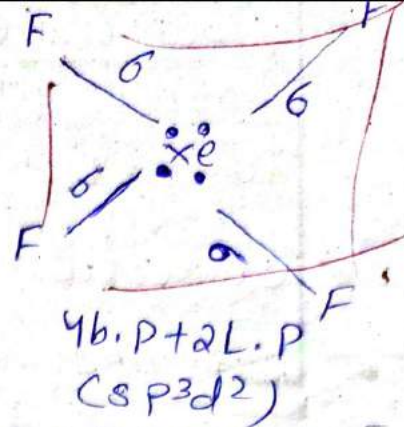 F F
σ σ
xe
σ σ
F F
4b.p+2L.p
(sp³d²)